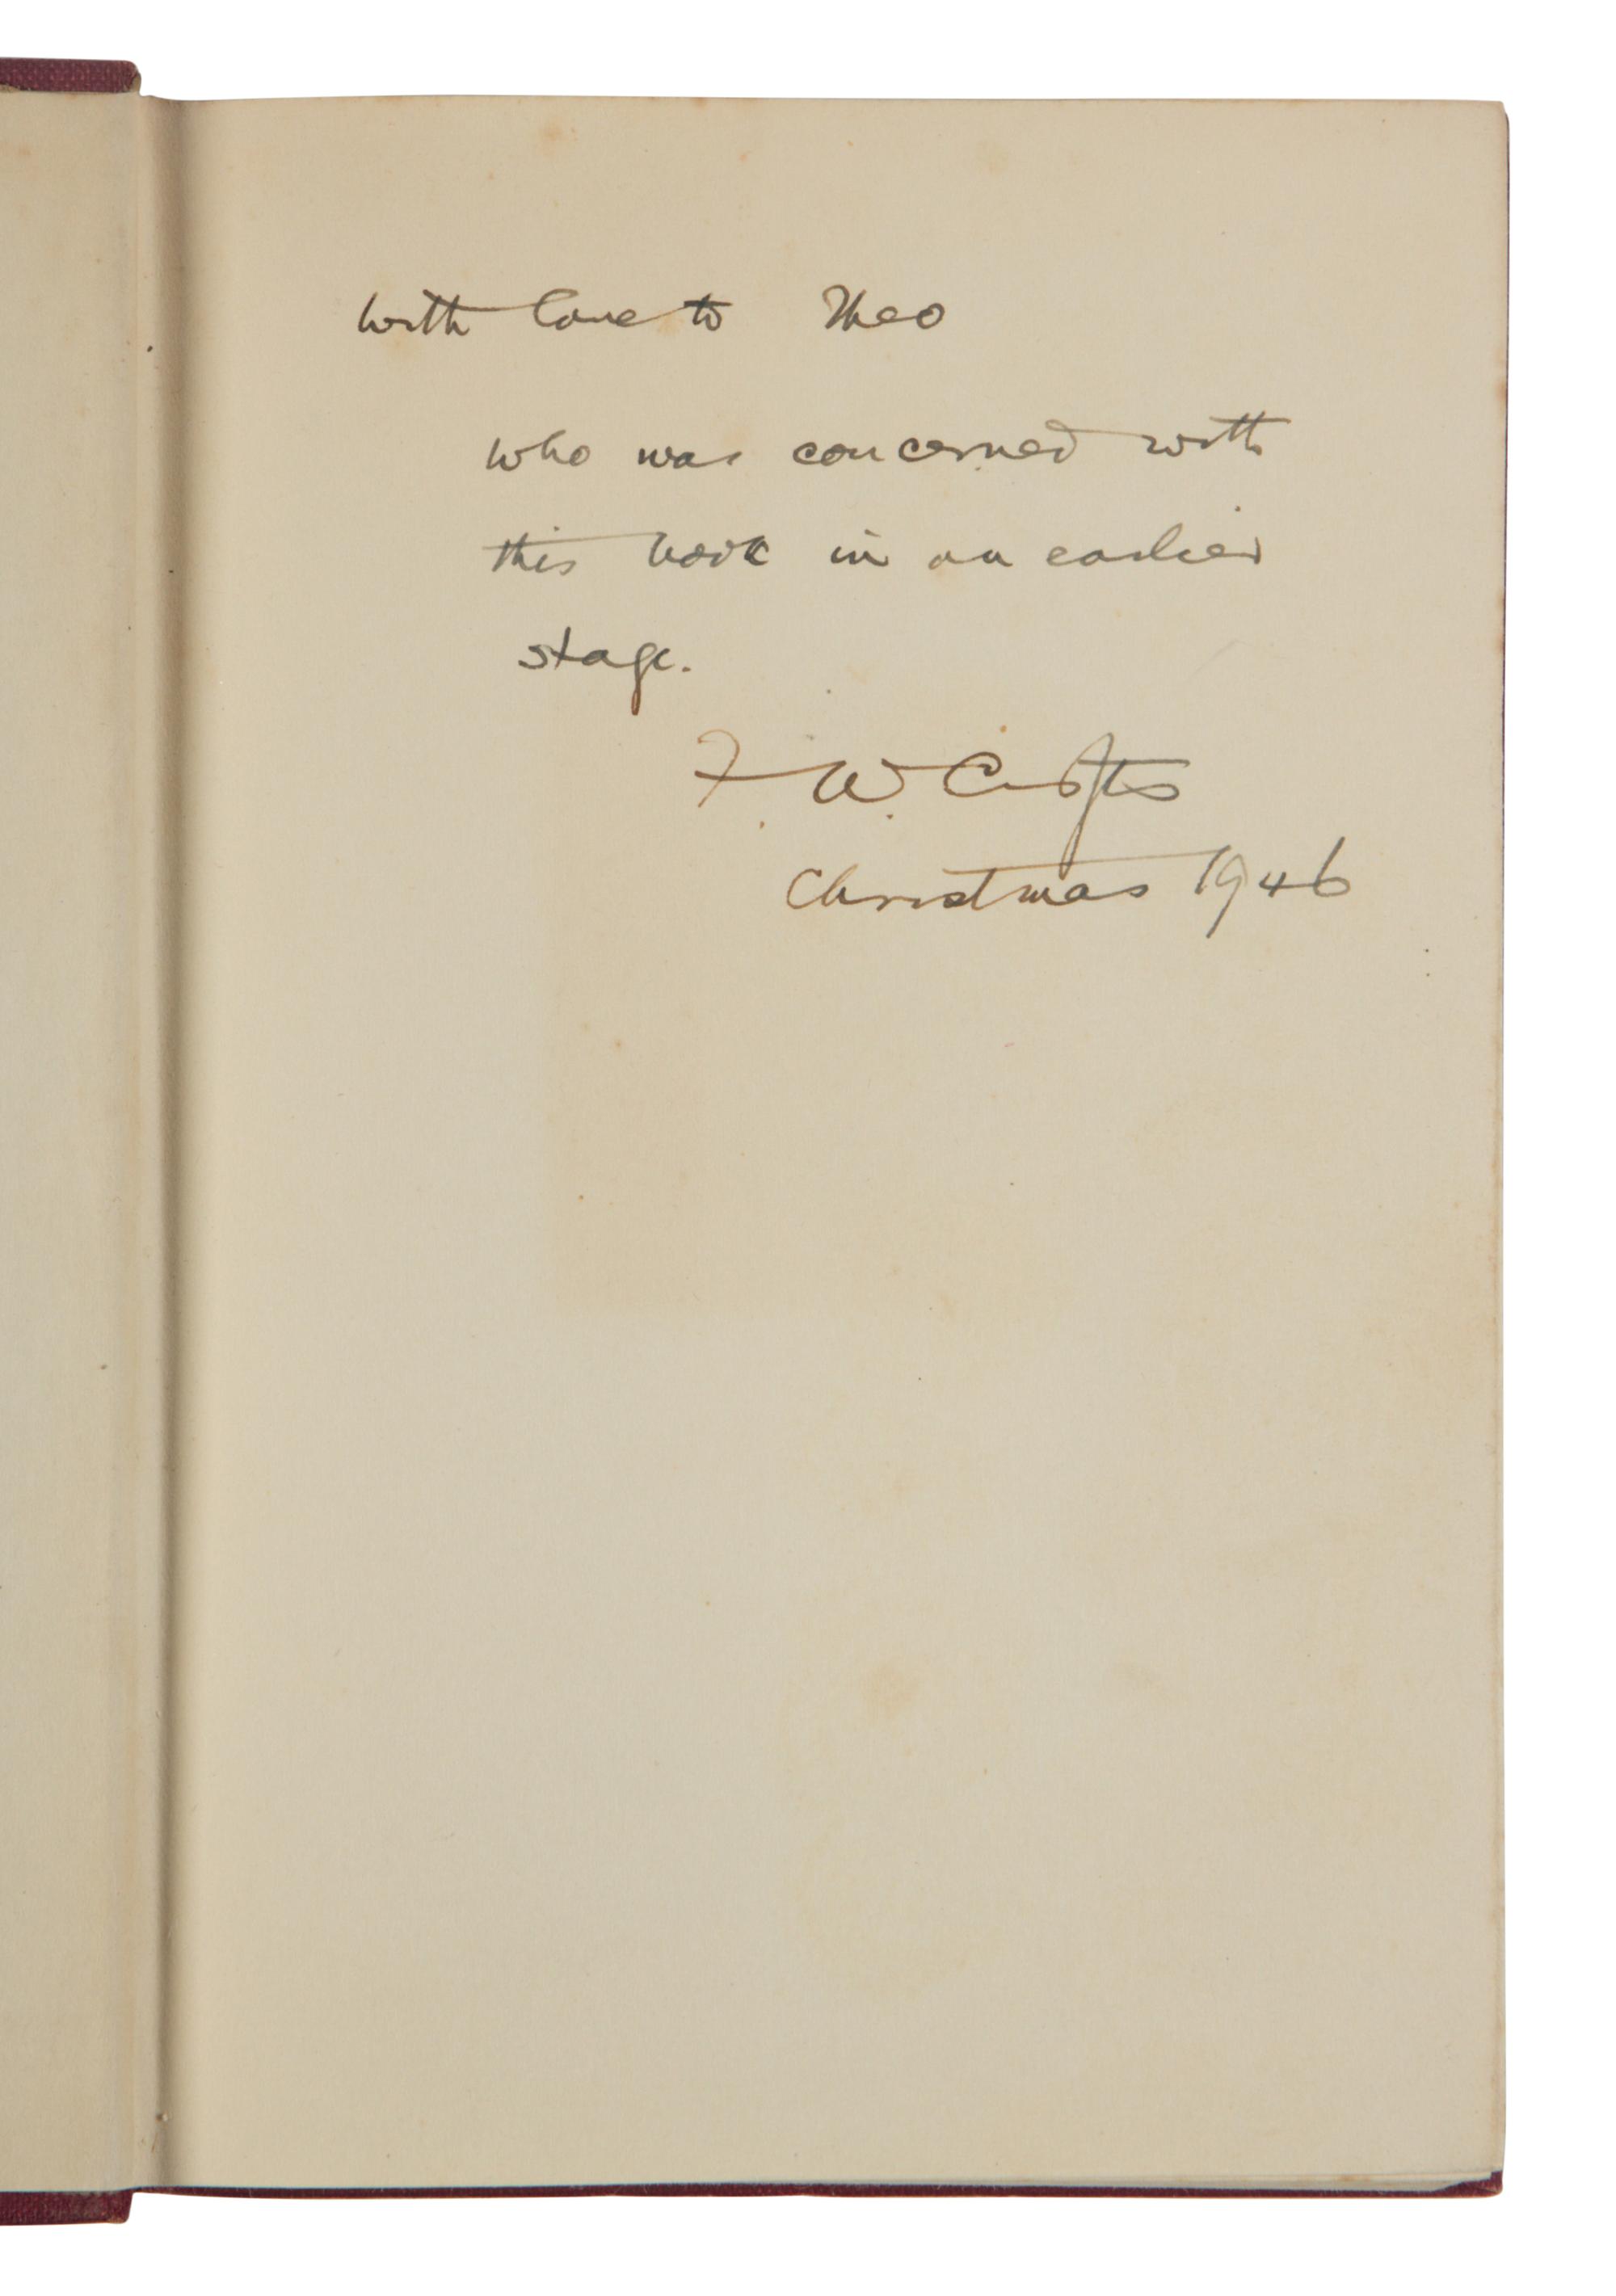 With love to Theo
who was concerned with
this book in an earlier
stage.
F. W. Crofts
Christmas 1946